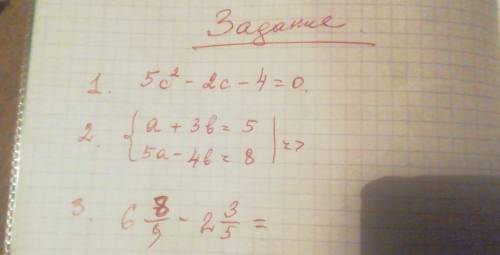 Задание.
1. 5c² - 2c - 4 = 0.
2. { a + 3b = 5
5a - 4b = 8 | =>
3. 6 8/9 - 2 3/5 =